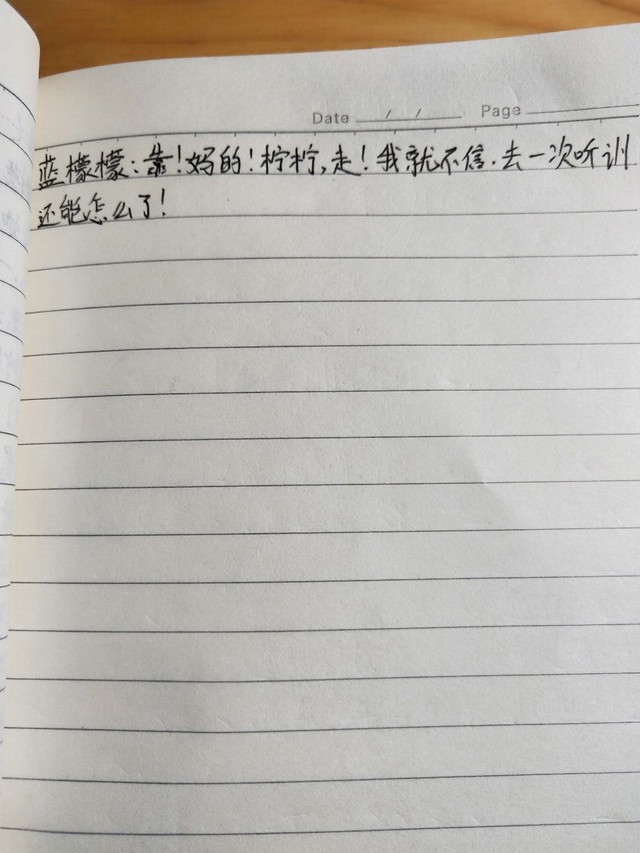 Date / / Page
蓝檬檬：靠！妈的！柠柠，走！我就不信.去一次听训
还能怎么了！